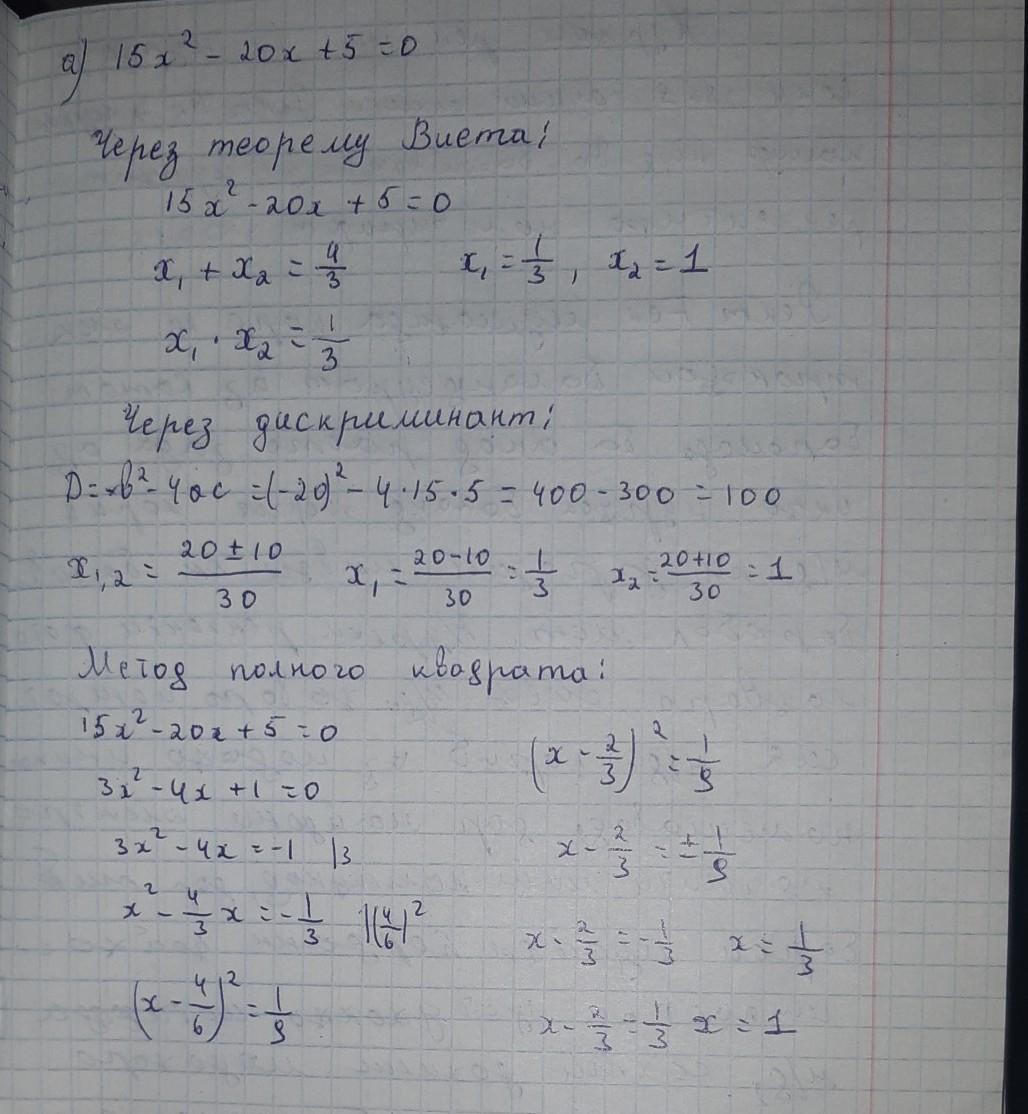 а) 15x² - 20x + 5 = 0
Через теорему Виета:
15x² - 20x + 5 = 0
x₁ + x₂ = 4/3 x₁ = 1/3, x₂ = 1
x₁ · x₂ = 1/3
Через дискриминант:
D = b² - 4ac = (-20)² - 4·15·5 = 400 - 300 = 100
x₁,₂ = (20 ± 10)/30 x₁ = (20-10)/30 = 1/3 x₂ = (20+10)/30 = 1
Метод полного квадрата:
15x² - 20x + 5 = 0
3x² - 4x + 1 = 0
3x² - 4x = -1 |3
x² - 4/3 x = -1/3 |(4/6)²
(x - 4/6)² = 1/9
(x - 2/3)² = 1/9
x - 2/3 = ± 1/9
x - 2/3 = -1/3 x = 1/3
x - 2/3 = 1/3 x = 1